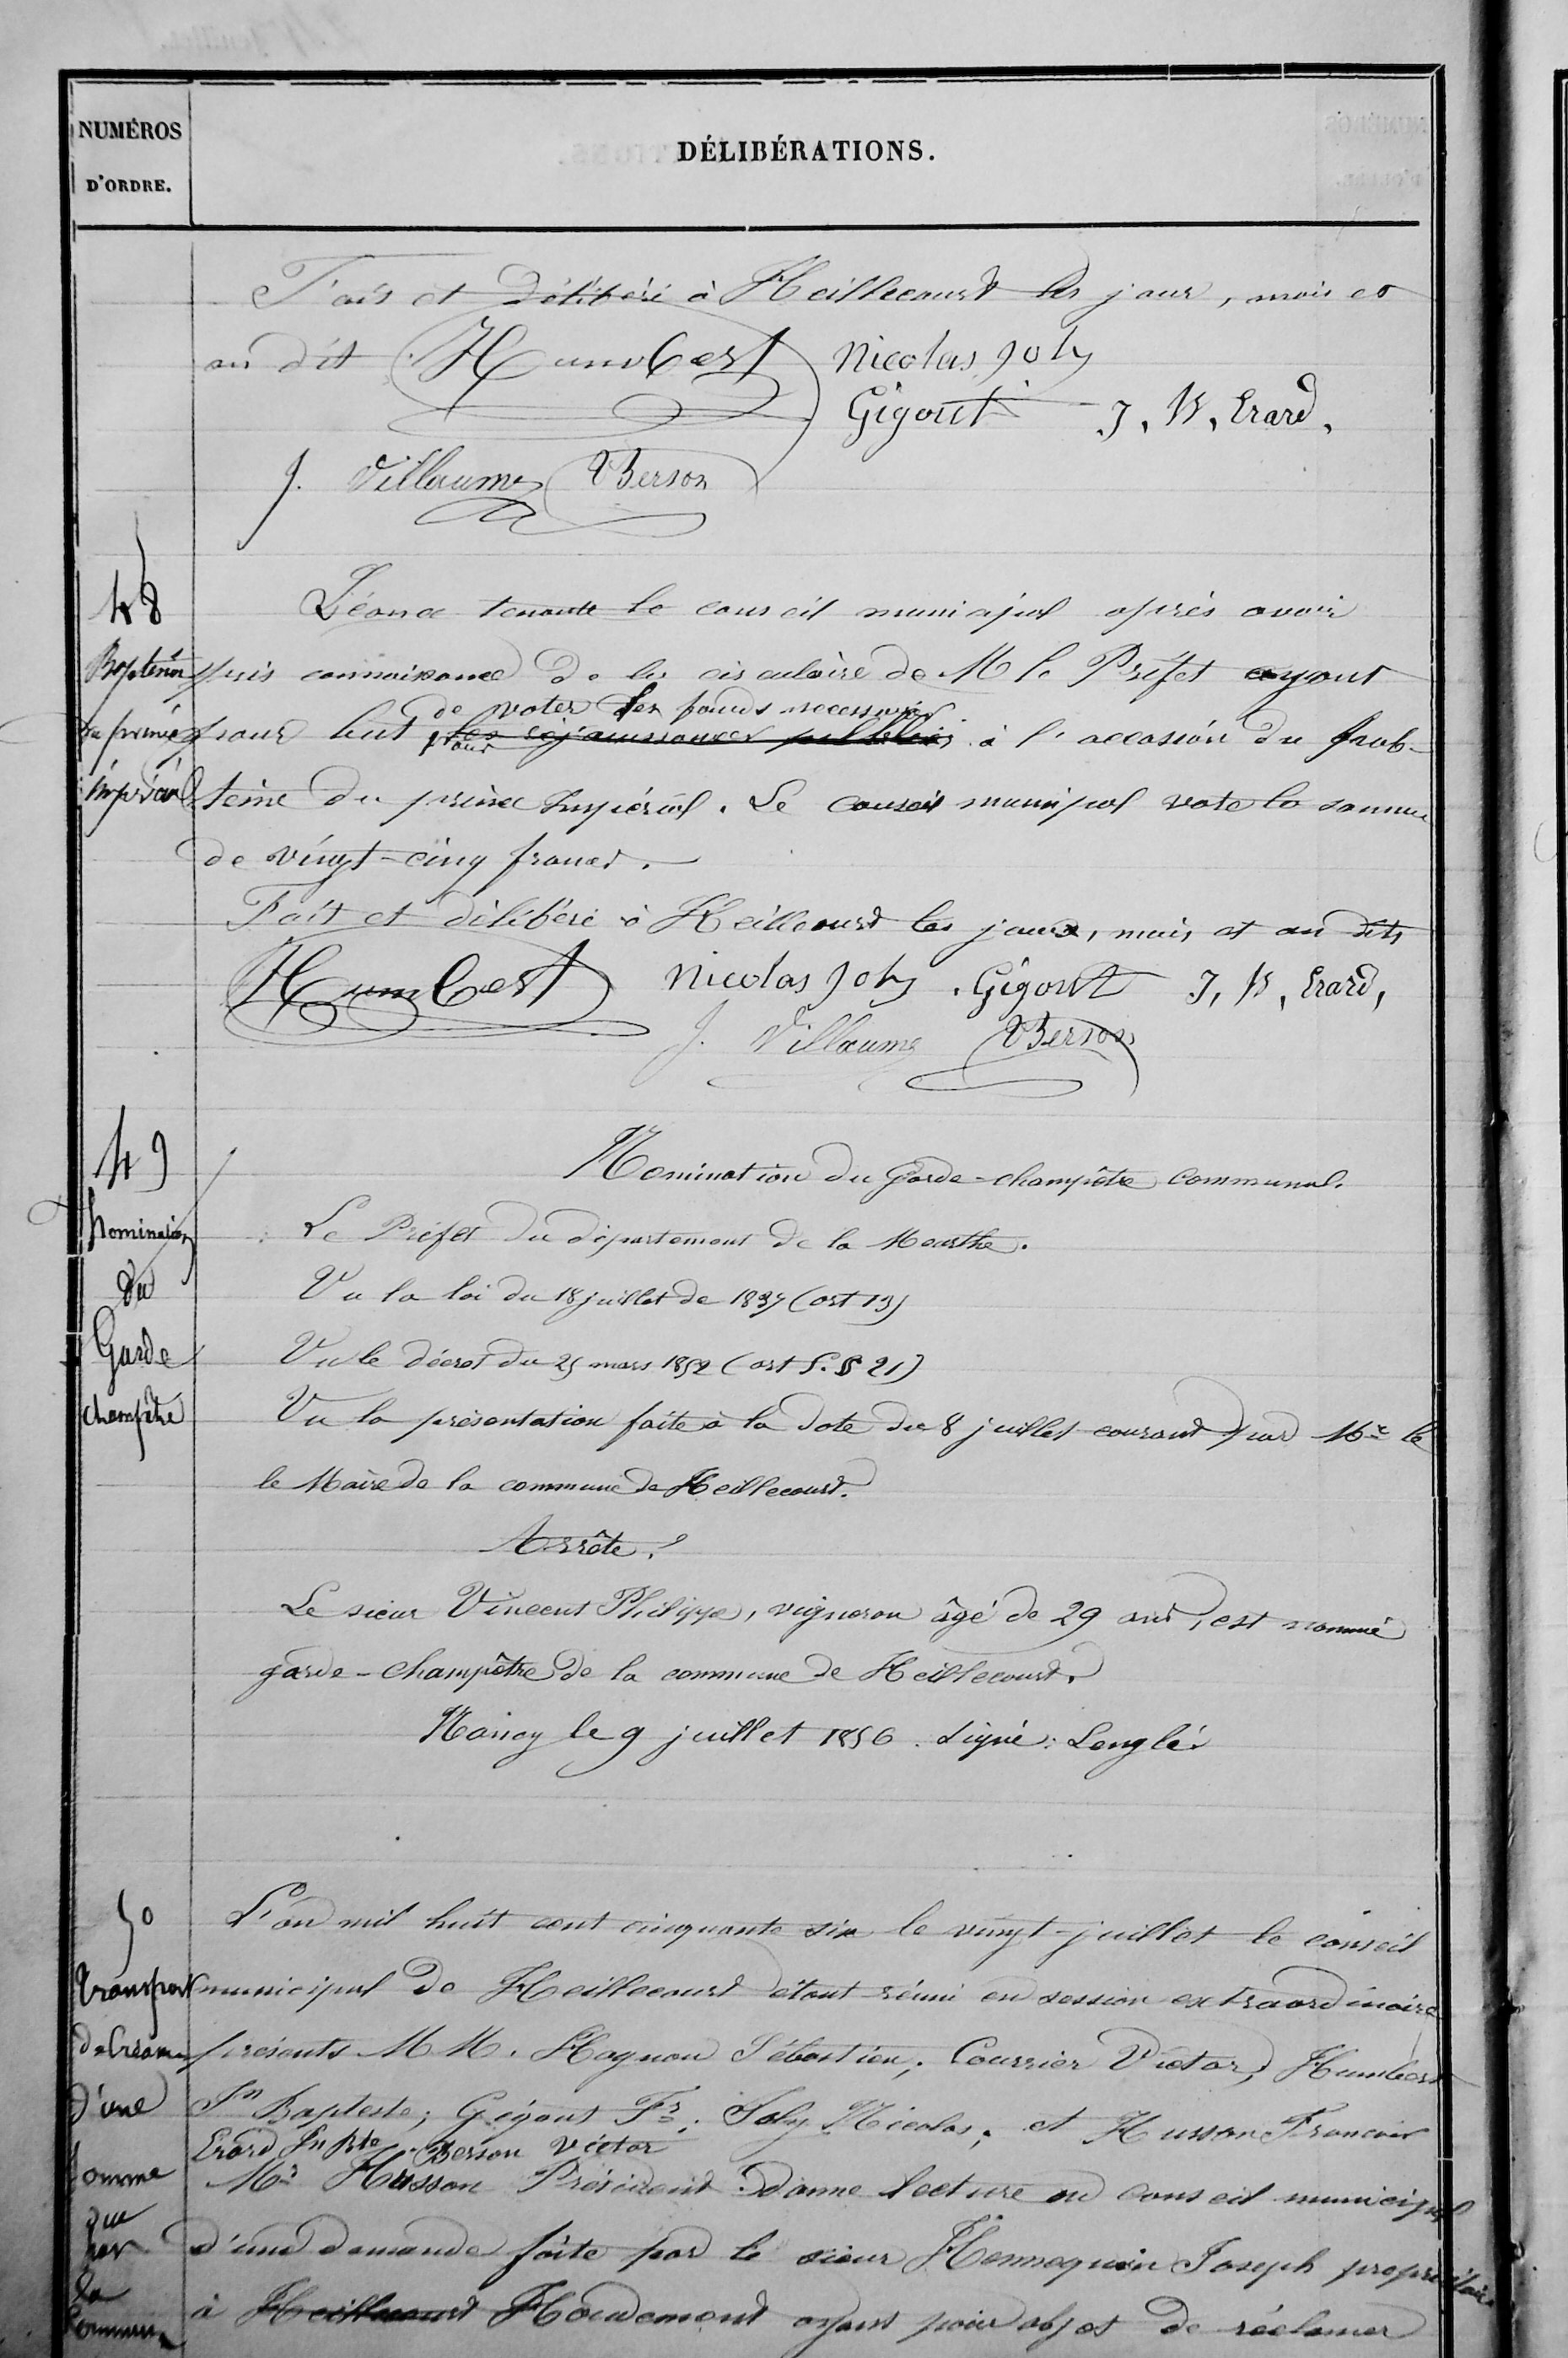 NUMÉROS
D'ORDRE.
DÉLIBÉRATIONS.
Fait et délibéré à Heillecourt les jour, mois et
an dit Humbert Nicolas Joly
Gigout J, B, Erard,
J. Villaume Berson
48
Baptême
du prince
impérial
Séance tenante le conseil municipal après avoir
pris connaissance de la circulaire de M le Préfet ayant
de voter des fonds necessaires
pour but pour les réjouissances publiques à l'occasion du bab-
teme du prince Impérial. Le conseil municipal vote la somme
de vingt-cinq francs.
Fait et délibéré à Heillecourt les jours, mois et an dits
Humbert Nicolas Joly Gigout J, B, Erard,
J. Villaume Berson
49
Nomination
du
Garde
champêtre
Nomination du Garde-champêtre communal.
Le Préfet du département de la Meurthe.
Vu la loi du 18 juillet de 1837 (art 13)
Vu le décret du 25 mars 1852 (art 5. § 21)
Vu la présentation faite à la date du 8 juillet courant par Mr le
le Maire de la commune de Heillecourt.
Arrête:
Le sieur Vincent Philippe, vigneron âgé de 29 ans, est nommé
garde-champêtre de la commune de Heillecourt.
Nancy le 9 juillet 1856. Signé: Lenglé
50
transport
de créance
d'une
somme
due
par
la
commune
L'an mil huit cent cinquante six le vingt-juillet le conseil
municipal de Heillecourt étant réuni en session extraordinaire
présents MM. Hagnon Sébastien; Courrier Victor; Humbert
Jn Bapteste; Gigout Fr; Joly Nicolas; et Husson Francois
Erard Jn Bte Berson Victor
Mr Husson Président donne lecture au conseil municipal
d'une demande faite par le sieur Hennequin Joseph propriétaire
à Heillecourt Houdemont ayant pour objet de réclamer